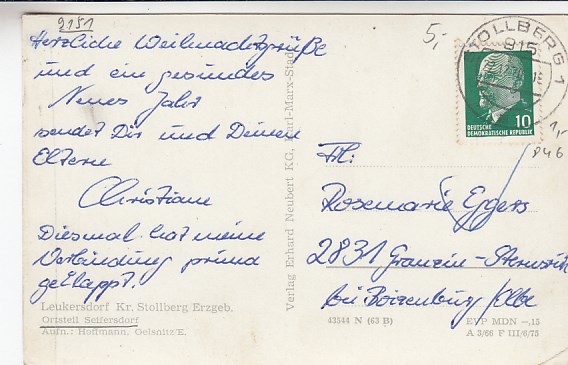 2151
Herzliche Weihnachtsgrüße
und ein gesundes
Neues Jahr
sendet Dir und Deinen
Eltern
Christiane
Diesmal hat meine
Verbindung prima
geklappt.
Leukersdorf Kr. Stollberg/Erzgeb.
Ortsteil Seifersdorf
Aufn.: Hoffmann, Oelsnitz/E.
Verlag Erhard Neubert KG, Karl-Marx-Stadt
5,-
STOLLBERG 1
915
10
DEUTSCHE
DEMOKRATISCHE REPUBLIK
1,-
846
Frl.
Rosemarie Eggers
2831 Granzin-Sternsruh
bei Boizenburg/Elbe
43544 N (63 B)
EVP MDN -,15
A 3/66 F III/6/75